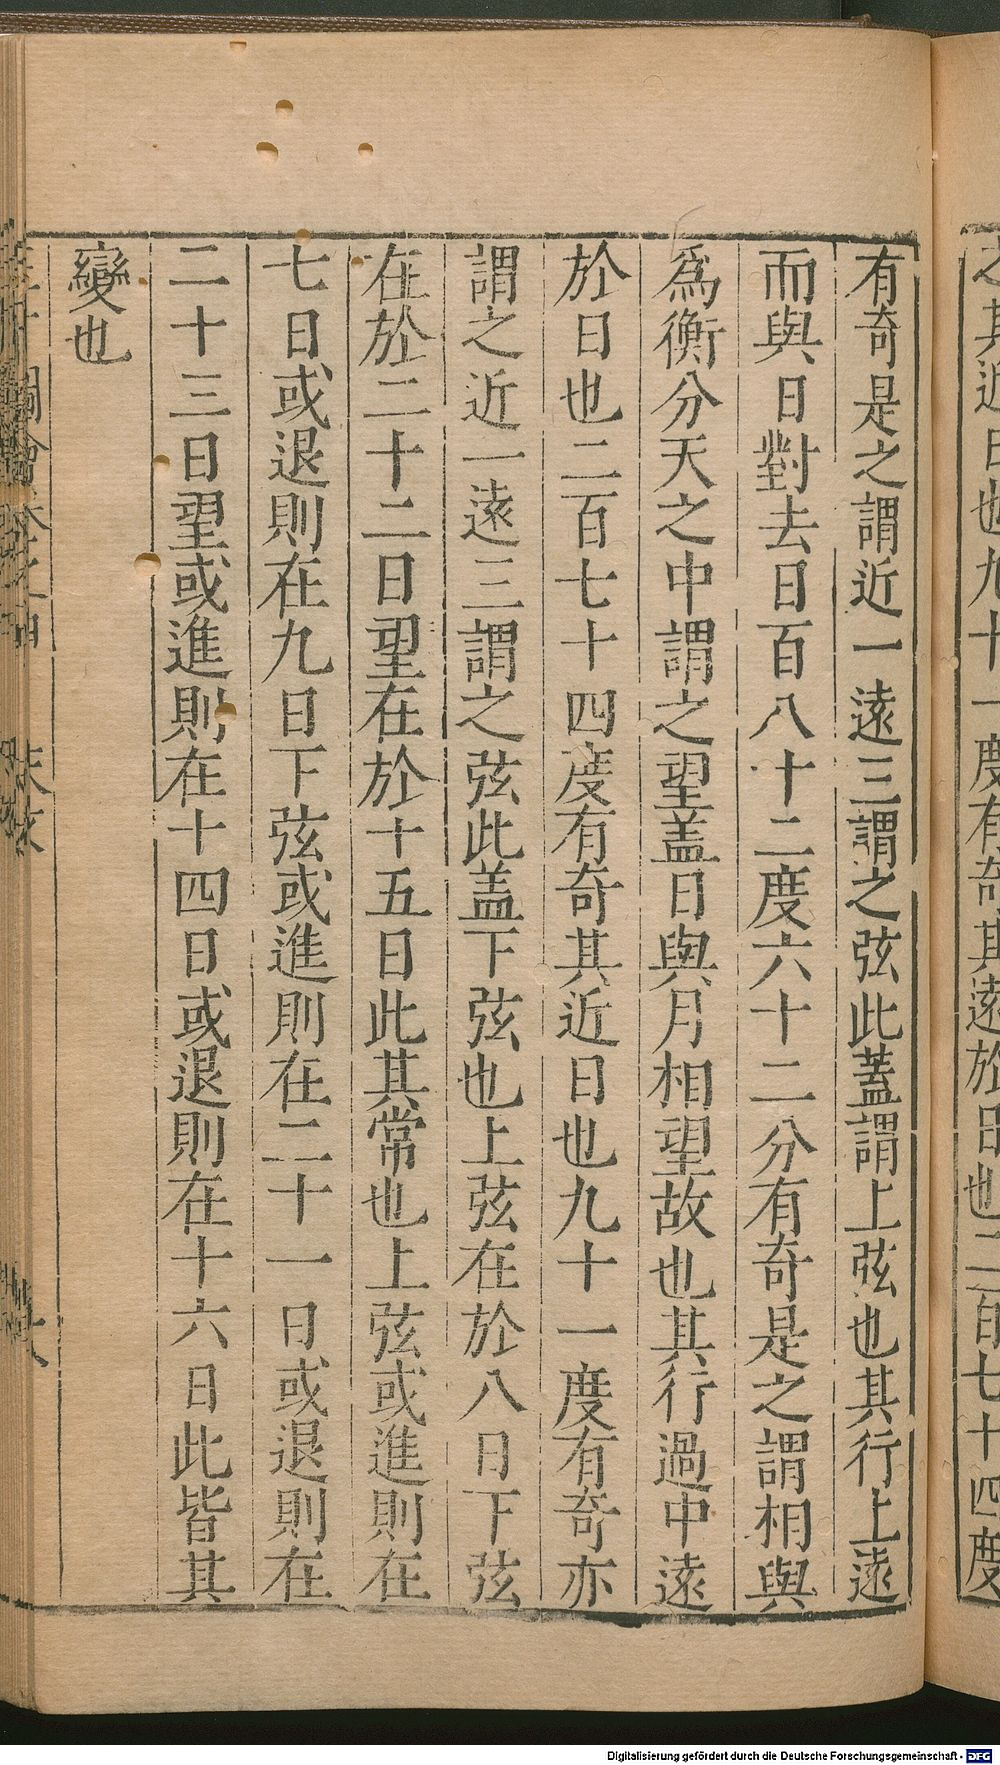 之其近日也九十一度有奇其遠於日也二百七十四度
有奇是之謂近一遠三謂之弦此蓋謂上弦也其行上遠
而與日對去日百八十二度六十二分有奇是之謂相與
爲衡分天之中謂之望盖日與月相望故也其行過中遠
於日也二百七十四度有奇其近日也九十一度有奇亦
謂之近一遠三謂之弦此盖下弦也上弦在於八日下弦
在於二十二日望在於十五日此其常也上弦或進則在
七日或退則在九日下弦或進則在二十一日或退則在
二十三日望或進則在十四日或退則在十六日此皆其
變也
Digitalisierung gefördert durch die Deutsche Forschungsgemeinschaft - DFG